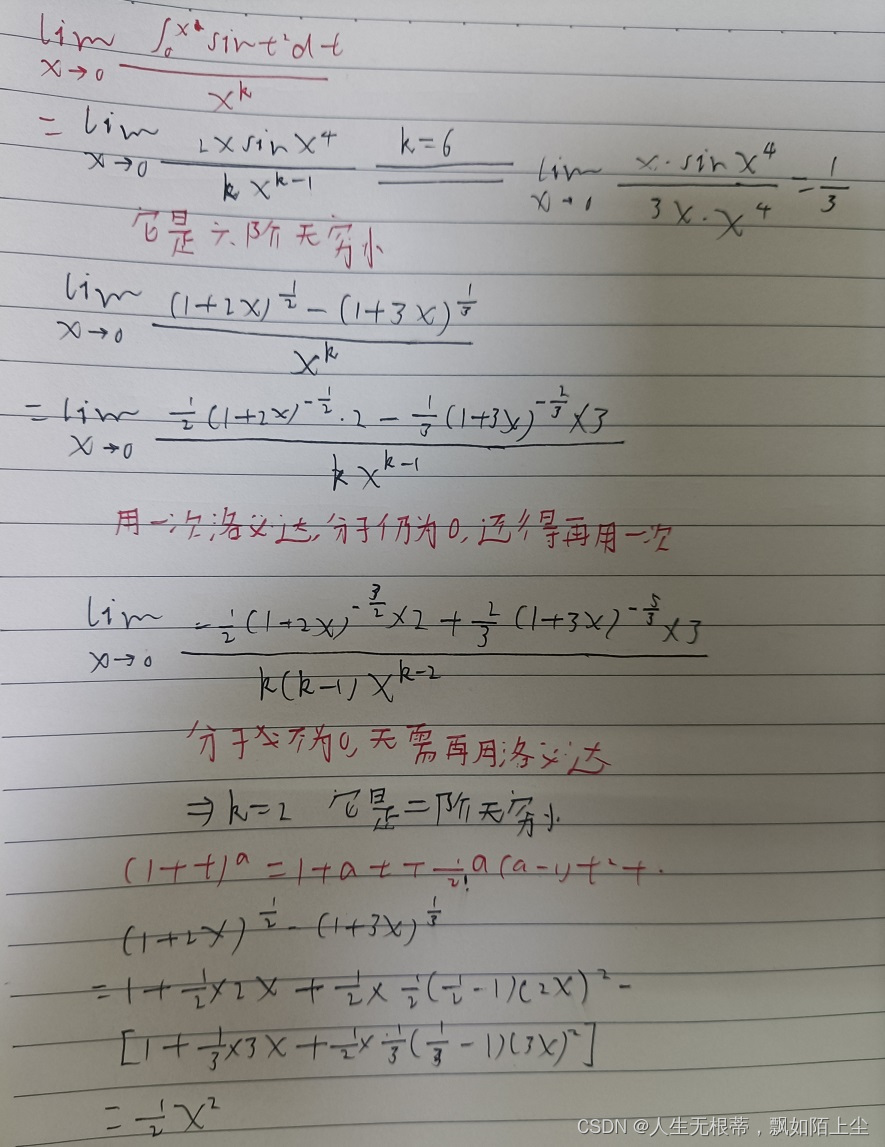 lim x→0 ∫₀^{x²} sin t² dt / x^k
= lim x→0 2x sin x⁴ / k x^{k-1} =(k=6)= lim x→0 x·sin x⁴ / 3x·x⁴ = 1/3
它是六阶无穷小
lim x→0 (1+2x)^{1/2} - (1+3x)^{1/3} / x^k
= lim x→0 1/2 (1+2x)^{-1/2}·2 - 1/3 (1+3x)^{-2/3}×3 / k x^{k-1}
用一次洛必达,分子仍为0,还得再用一次
lim x→0 -1/2 (1+2x)^{-3/2}×2 + 2/3 (1+3x)^{-5/3}×3 / k(k-1) x^{k-2}
分子 不为0,无需再用洛必达
⇒ k=2 它是二阶无穷小
(1+t)^a = 1+at+ 1/2! a(a-1)t²+·
(1+2x)^{1/2} - (1+3x)^{1/3}
= 1 + 1/2×2x + 1/2×1/2(1/2-1)(2x)² -
[1 + 1/3×3x + 1/2×1/3(1/3-1)(3x)²]
= 1/2 x²
CSDN @人生无根蒂，飘如陌上尘